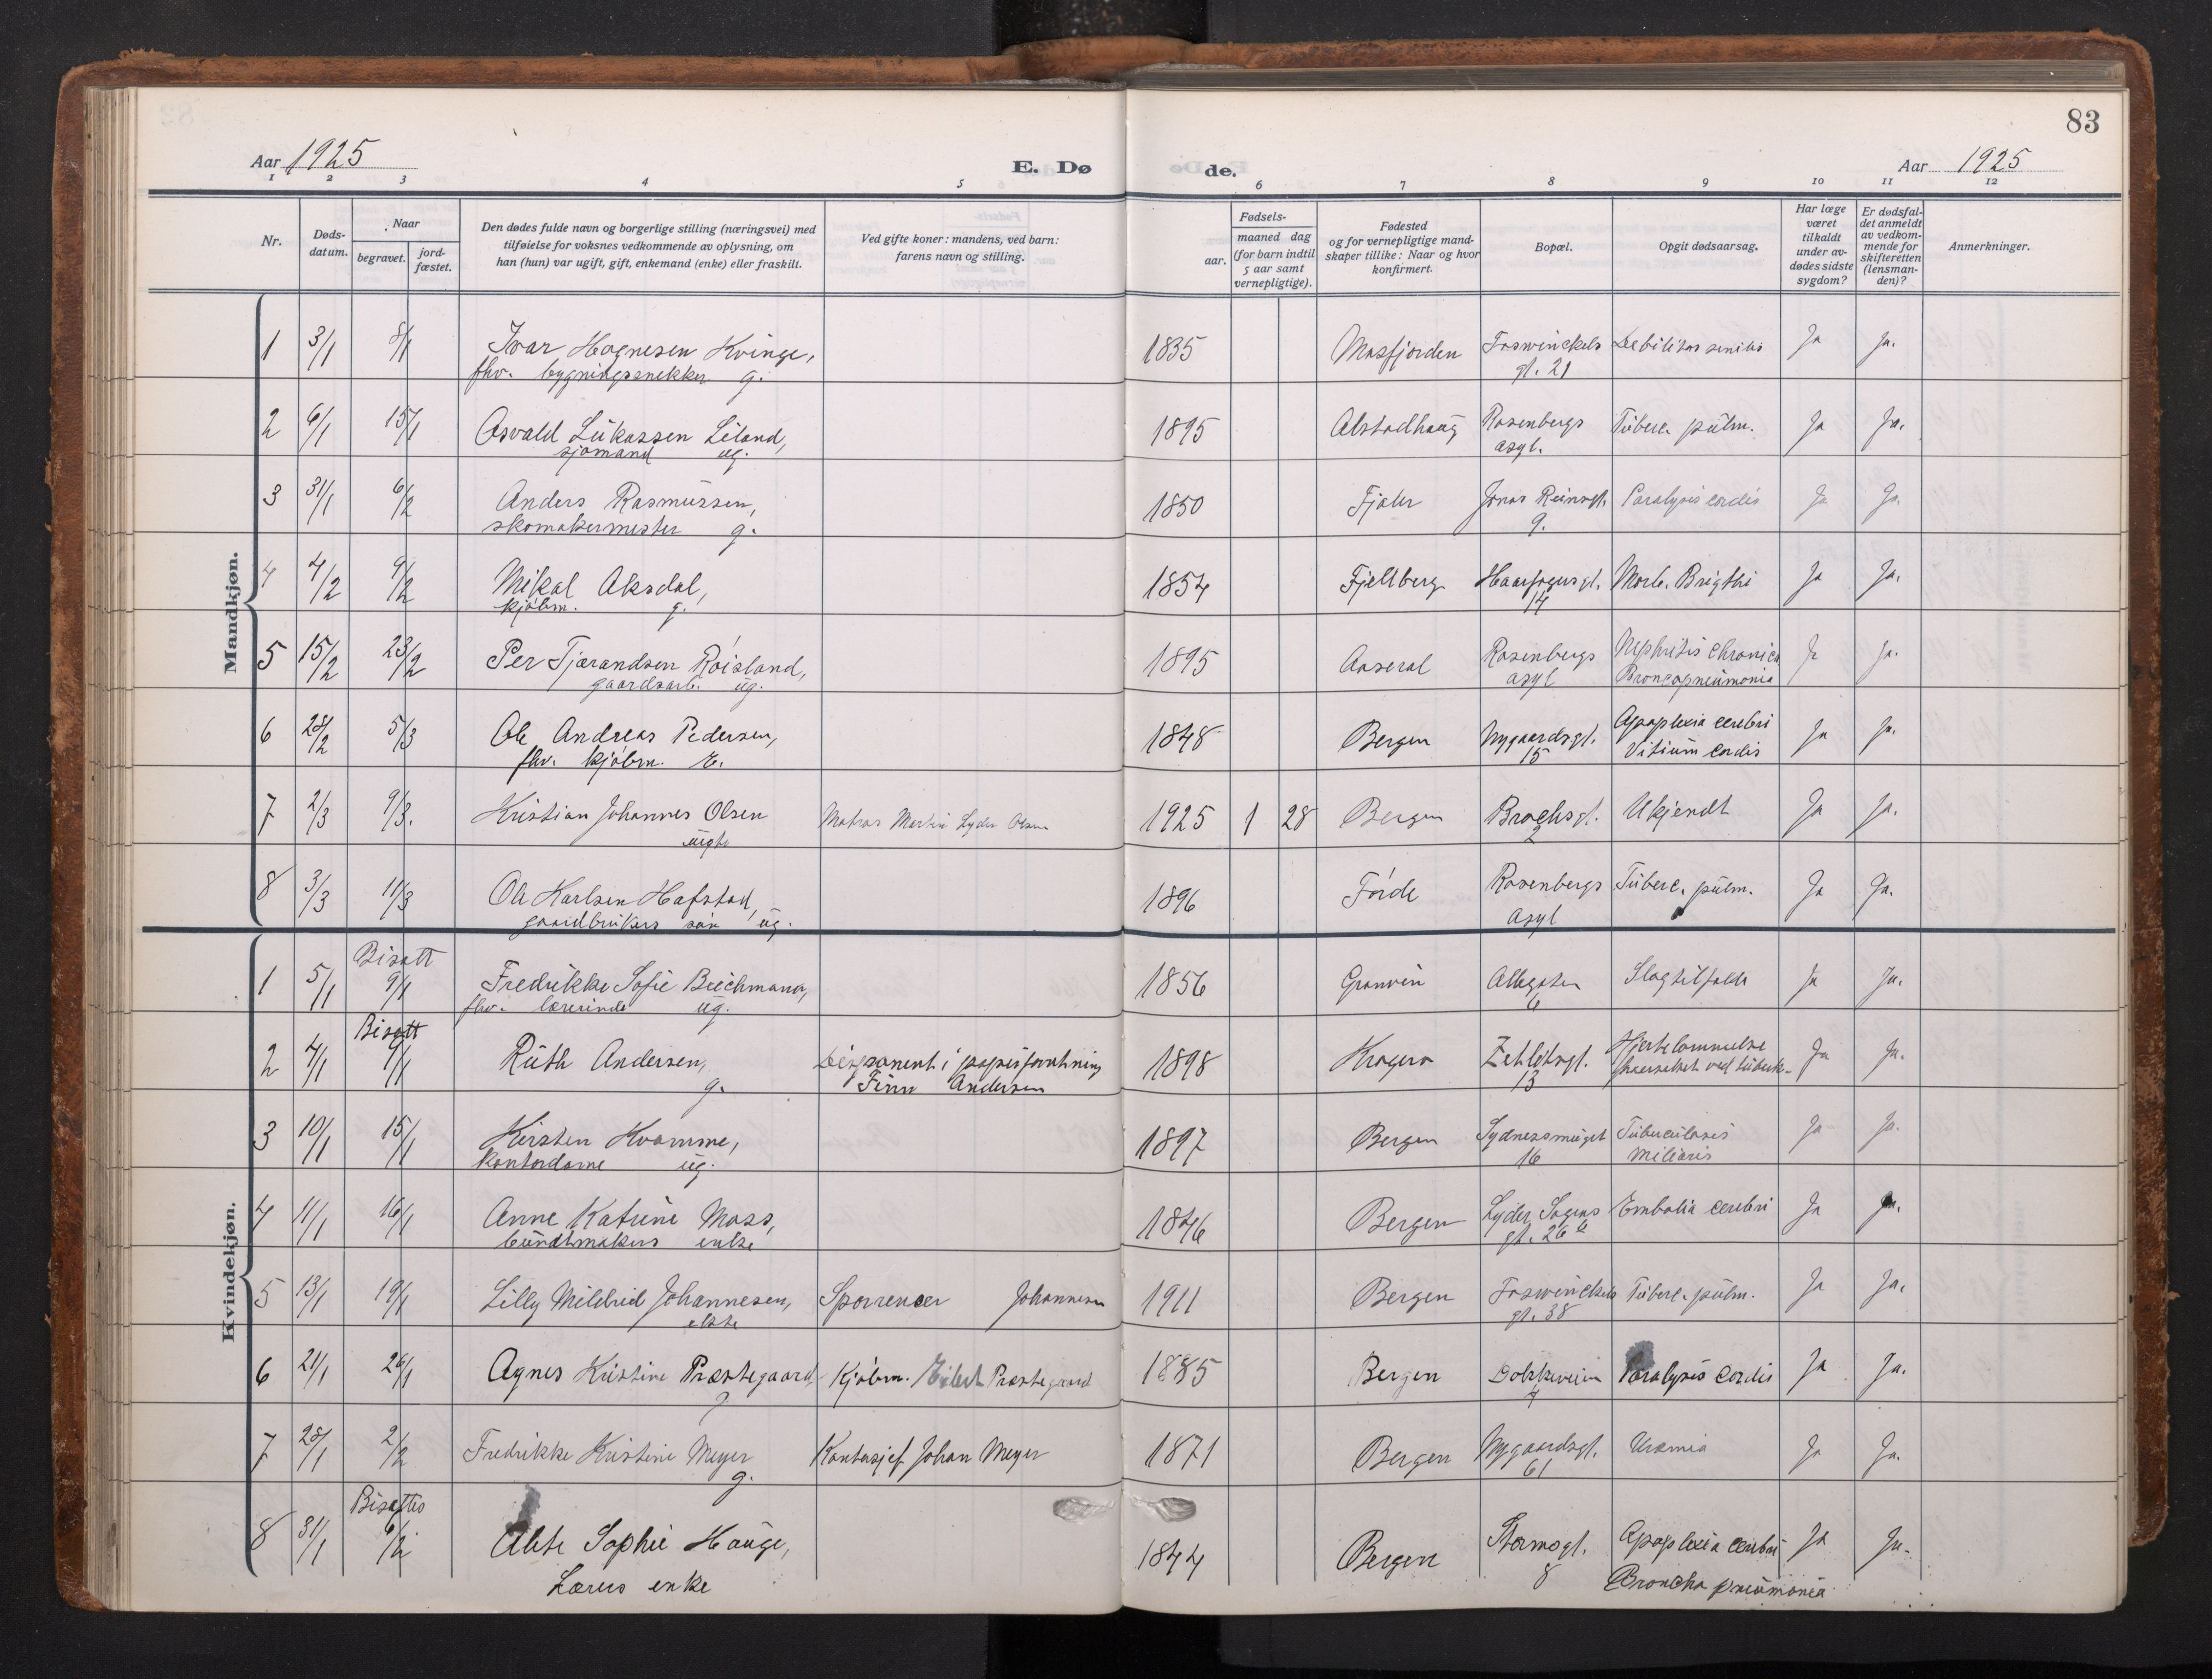 83
Aar 1925
E. Dø
de.
Aar 1925
1 2 3 4 5 6 7 8 9 10 11 12
Nr.
Døds-
datum.
Naar
begravet.
jord-
fæstet.
Den dødes fulde navn og borgerlige stilling (næringsvei) med
tilføielse for voksnes vedkommende av oplysning, om
han (hun) var ugift, gift, enkemand (enke) eller fraskilt.
Ved gifte koner: mandens, ved barn:
farens navn og stilling.
Fødsels-
aar.
maaned dag
(for barn indtil
5 aar samt
vernepligtige).
Fødested
og for vernepligtige mand-
skaper tillike: Naar og hvor
konfirmert.
Bopæl.
Opgit dødsaarsag.
Har læge
været
tilkaldt
under av-
dødes sidste
sygdom?
Er dødsfal-
det anmeldt
av vedkom-
mende for
skifteretten
(lensman-
den)?
Anmerkninger.
Mandkjøn.
1 3/1 8/1 Ivar Hognesen Kvinge, 1835 Masfjorden Foswinckels Debilitas senilis Ja Ja.
fhv. bygningssnekker g. gt. 21
2 6/1 15/1 Osvald Lukassen Leland, 1895 Alstadhaug Rosenbergs Tuberc. pulm. Ja Ja.
sjømand ug. asyl.
3 31/1 6/2 Anders Rasmussen, 1850 Fjaler Jonas Reinsgt. Paralysis cordis Ja Ja.
skomakermester g. 9.
4 4/2 9/2 Mikal Aksdal, 1854 Fjellberg Haarfagersgt. Morb. Brigthi Ja Ja.
kjøbm. g. 14
5 15/2 23/2 Per Tjærandsen Røisland, 1895 Aaseral Rosenbergs Nephritis chronica Ja Ja.
gaardsarb. ug. asyl Broncopneumonia
6 28/2 5/3 Ole Andreas Pedersen, 1848 Bergen Nygaardsgt. Apoplexia cerebri Ja Ja.
fhv. kjøbm. E. 15 Vitium cordis
7 2/3 9/3. Kristian Johannes Olsen Matros Martin Lyder Olsen 1925 1 28 Bergen Brochsgt. Ukjendt Ja Ja.
uegte 2
8 3/3 11/3 Ole Karlsen Hafstad, 1896 Førde Rosenbergs Tuberc. pulm. Ja Ja.
gaardbrukers søn ug. asyl
Kvindekjøn.
Bisatt
1 5/1 9/1 Fredrikke Sofie Brichmann, 1856 Granvin Allegaten Slagtilfelde Ja Ja.
fhv. lærerinde ug. 6
Bisatt
2 4/1 7/1 Ruth Andersen, Disponent i papirforretning 1898 Kragerø Zetlitzgt. Hjertelammelse Ja Ja.
g. Finn Andersen 13
3 10/1 15/1 Kirsten Kvamme, 1897 Bergen Sydnessmuget Tuberculosis Ja Ja.
kontordame ug. 16 miliaris
4 11/1 16/1 Anne Katrine Moss, 1846 Bergen Lyder Sagens Embolia cerebri Ja Ja.
bundtmakers enke gt. 26 b
5 13/1 19/1 Lilly Mildrid Johannesen, Johannesen 1911 Bergen Foswinckels Tuberc. pulm. Ja Ja.
ekte gt. 38
6 21/1 26/1 Agnes Kristine Præstegaard, Kjøbm. Eilert Præstegaard 1885 Bergen Paralysis cordis Ja Ja.
g
7 28/1 2/2 Fredrikke Kristine Meyer Kontorsjef Johan Meyer 1871 Bergen Nygaardsgt. Uræmia Ja Ja.
g. 61
Bisattes
8 31/1 6/2 Alete Sophie Hauge, 1844 Bergen Stormsgt. Apoplexia cerebri Ja Ja.
Lærers enke 8 Broncho pneumonia